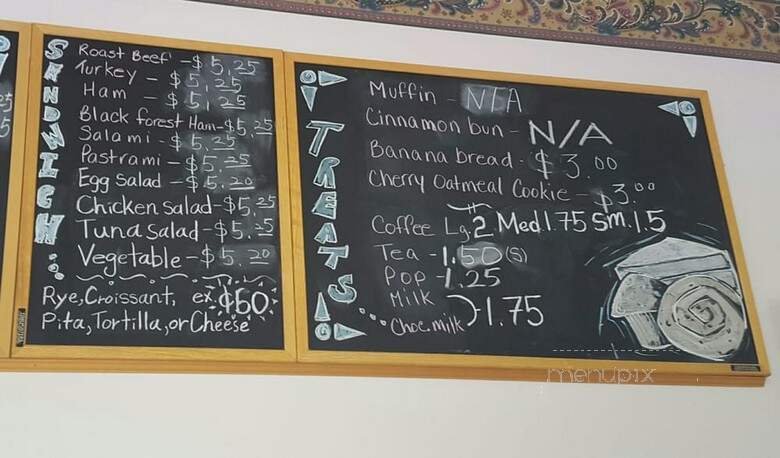 SANDWICH
Roast Beef - $5.25
Turkey - $5.25
Ham - $5.25
Black forest Ham - $5.25
Salami - $5.25
Pastrami - $5.25
Egg Salad - $5.20
Chicken Salad - $5.25
Tuna Salad - $5.25
Vegetable - $5.20
Rye, Croissant, ex. $60
Pita, Tortilla, or Cheese
TREATS
Muffin - N/A
Cinnamon bun - N/A
Banana bread - $3.00
Cherry Oatmeal Cookie - $3.00
Coffee Lg. 2 Med. 1.75 Sm. 1.5
Tea - 1.50 (S)
Pop - 1.25
Milk
Choc. milk - 1.75
menupix